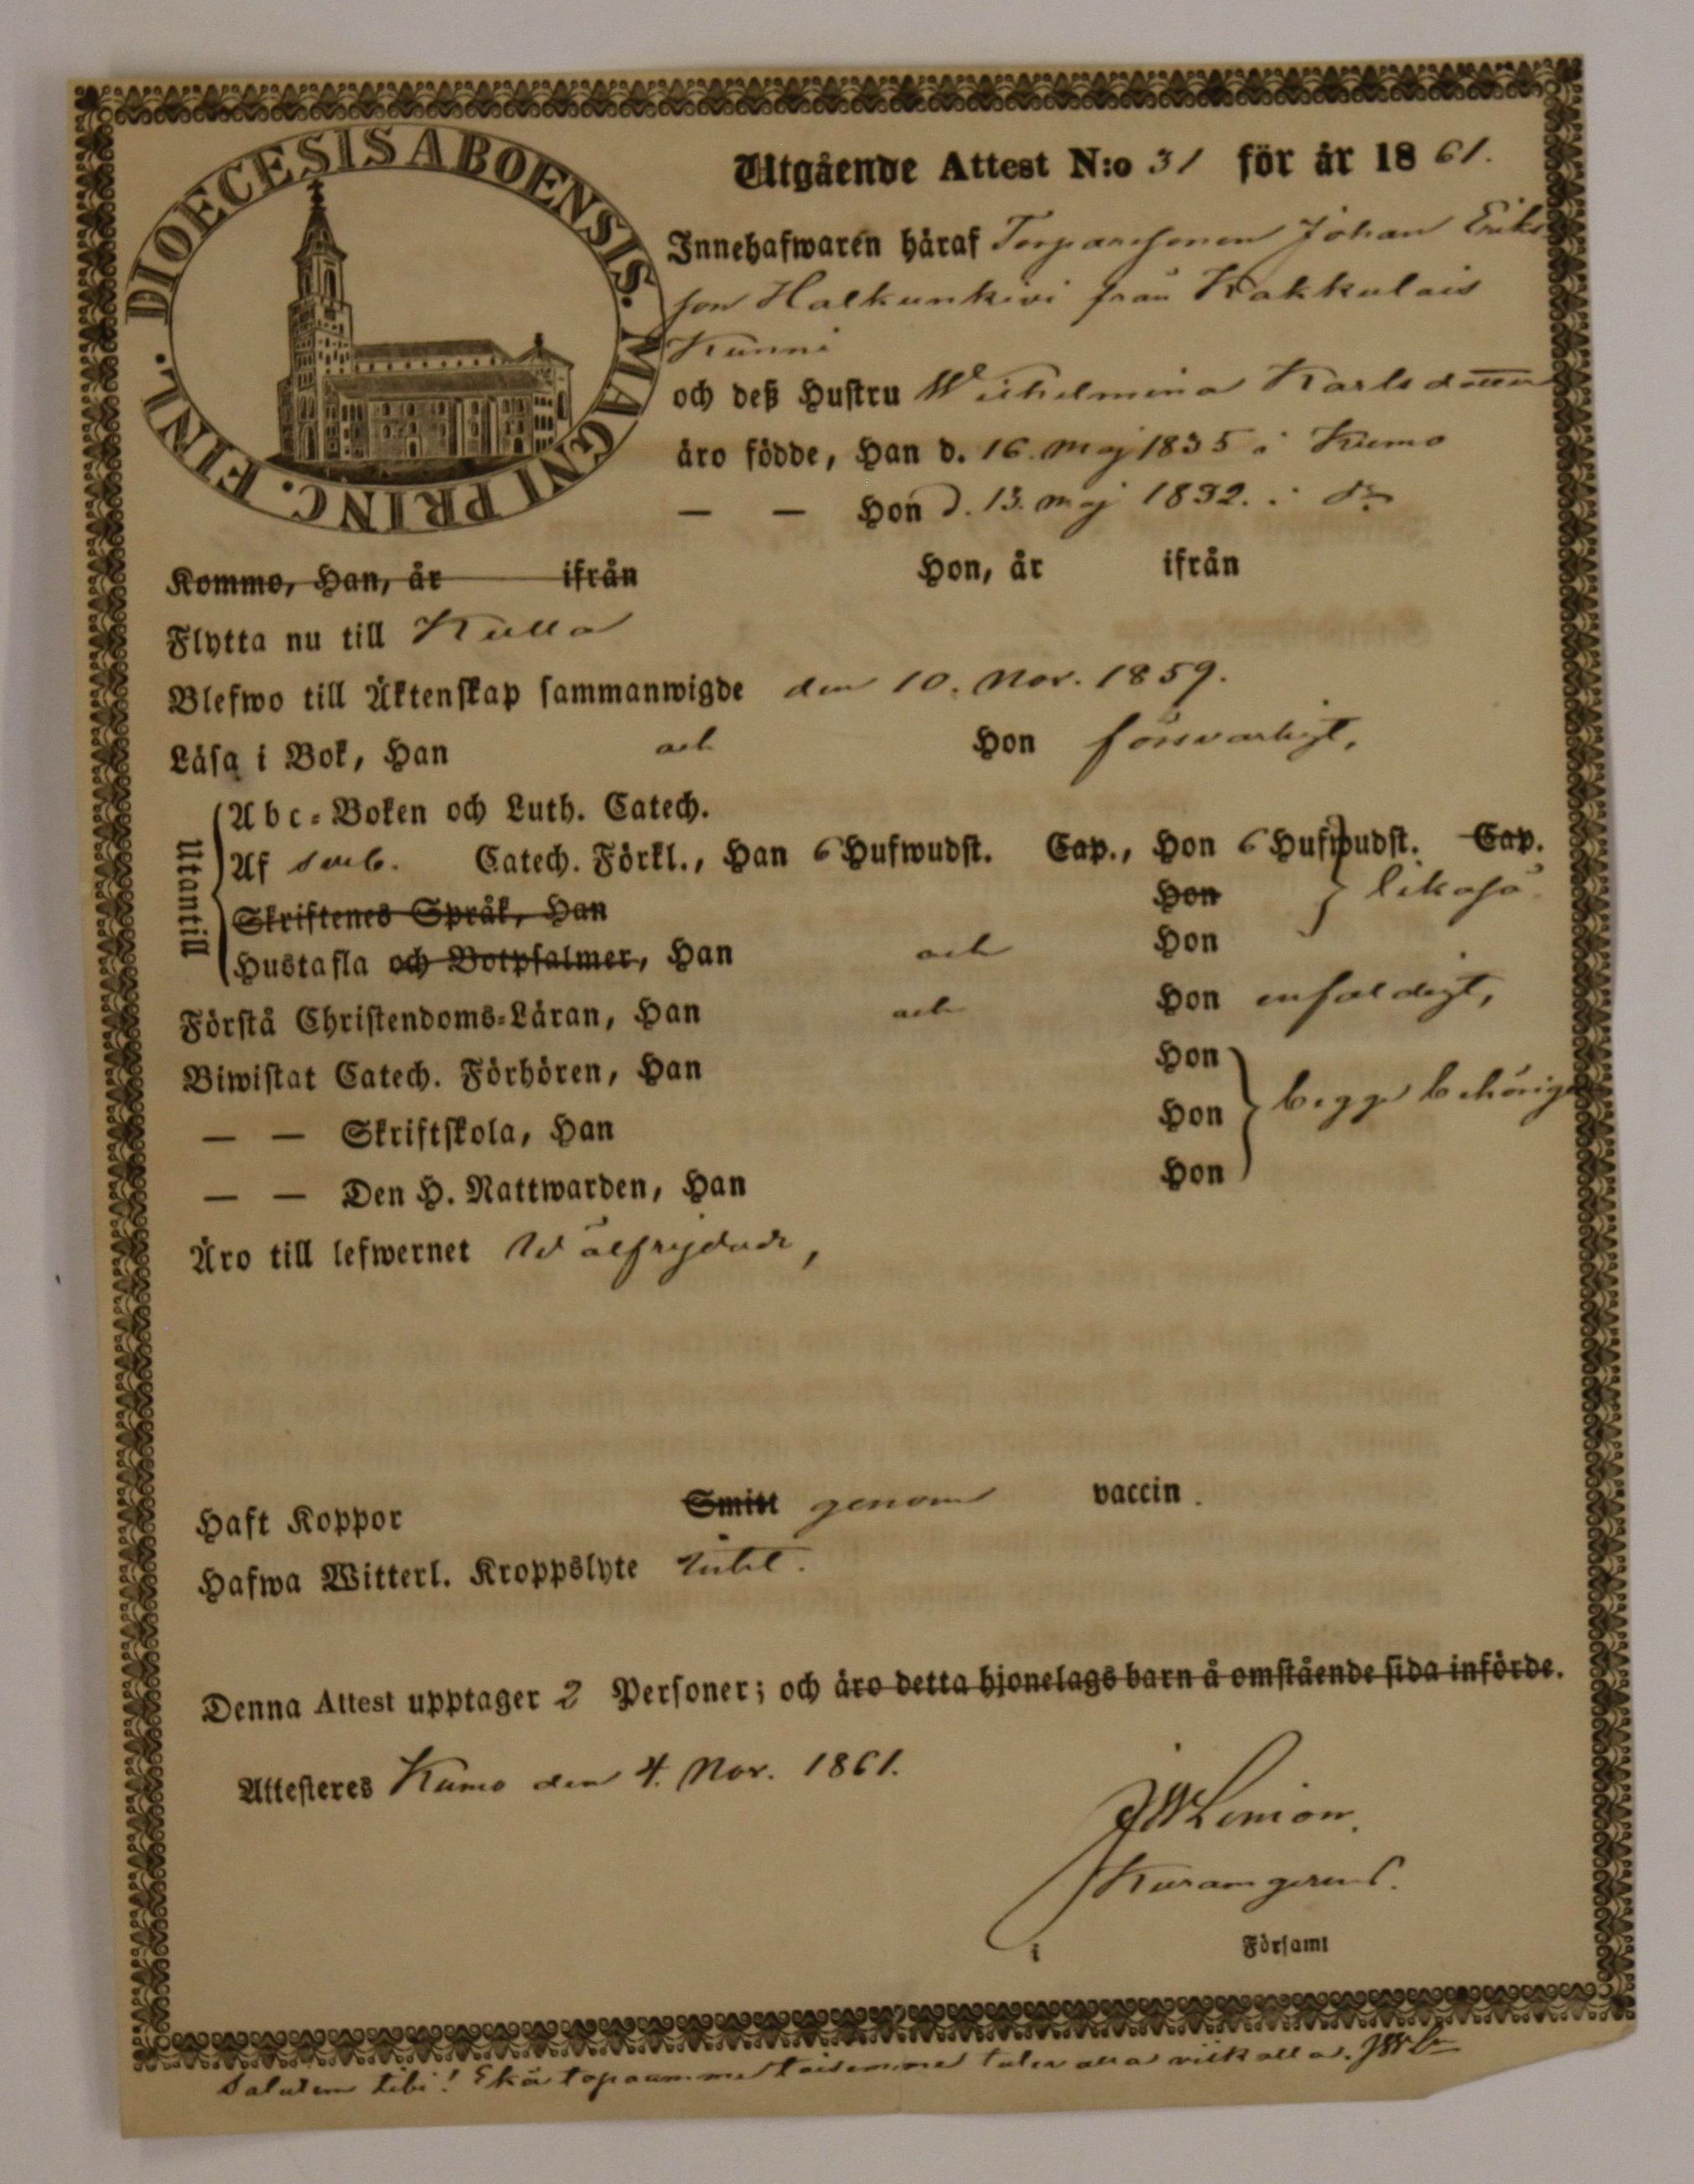 DIOECESIS ABOENSIS. MAGNI PRINC. FINL.
Utgående Attest N:o 31 för år 1861.
Innehafwaren häraf Torparesonen Johan Eriks
son Halkunkivi från Kakkulais
Kunni
och deß Hustru Wilhelmina Karlsdotter
äro födde, Han d. 16. Maj 1835 i Kumo
— — Hon d. 13. Maj 1832. i do
Kommo, Han, år ifrån Hon, år ifrån
Flytta nu till Kulla
Blefwo till Äktenskap sammanwigde den 10. Nov. 1859.
Läsa i Bok, Han och Hon försvarligt,
Utantill
Abc-Boken och Luth. Catech.
Af Catech. Förkl., Han 6 Hufwudst. Cap., Hon 6 Hufwudst. Cap.
Skriftenes Språk, Han Hon likaså
Hustafla och Botpsalmer, Han och Hon
Förstå Christendoms-Läran, Han och Hon enfaldigt,
Biwistat Catech. Förhören, Han Hon
— — Skriftskola, Han Hon begge behörigen
— — Den H. Nattwarden, Han Hon
Äro till lefwernet Wälfrejdade,
Haft Koppor Smitt genom vaccin.
Hafwa Witterl. Kroppslyte intet.
Denna Attest upptager 2 Personer; och äro detta hjonelags barn å omstående sida införde.
Attesteres Kumo den 4. Nov. 1861.
i Församl
Salutem tibi! Ehkä tapaamme toisemme